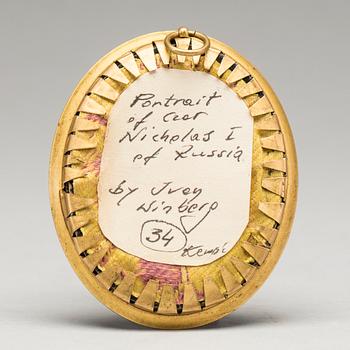 Portrait
of czar
Nicholas I
of Russia
by Ivan
Winberg
34